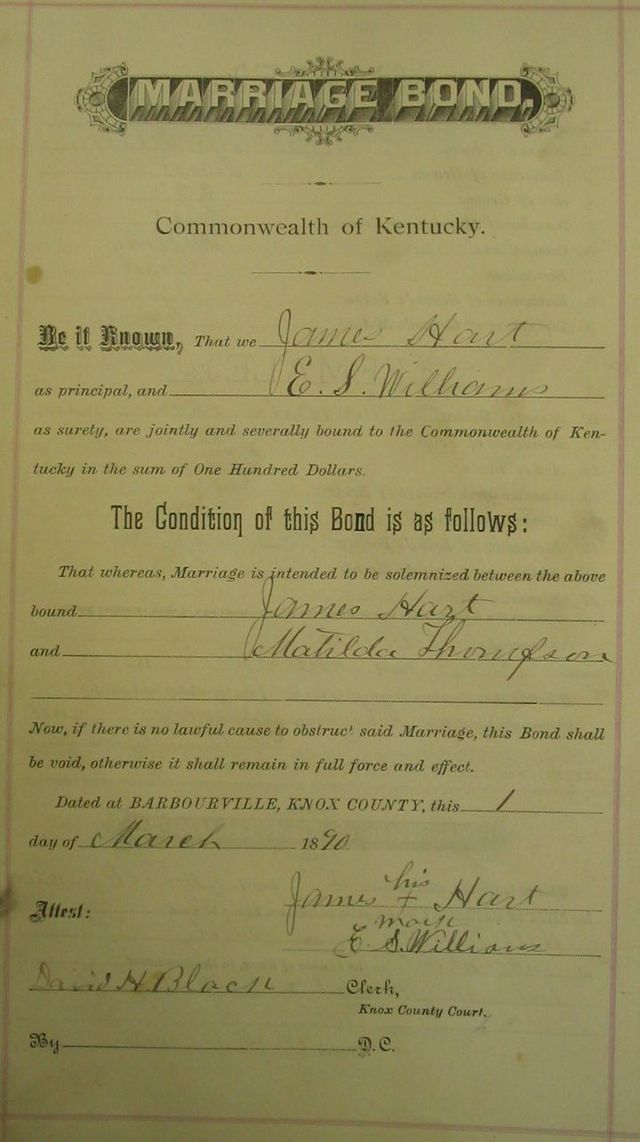 MARRIAGE BOND.
Commonwealth of Kentucky.
Be it Known, That we James Hart
as principal, and E. S. Williams
as surety, are jointly and severally bound to the Commonwealth of Ken-
tucky in the sum of One Hundred Dollars.
The Condition of this Bond is as follows:
That whereas, Marriage is intended to be solemnized between the above
bound James Hart
and Matilda Thompson
Now, if there is no lawful cause to obstruct said Marriage, this Bond shall
be void, otherwise it shall remain in full force and effect.
Dated at BARBOURVILLE, KNOX COUNTY, this 1
day of March 1890
his
Attest: James + Hart
mark
E. S. Williams
David H Black Clerk,
Knox County Court.
By D. C.